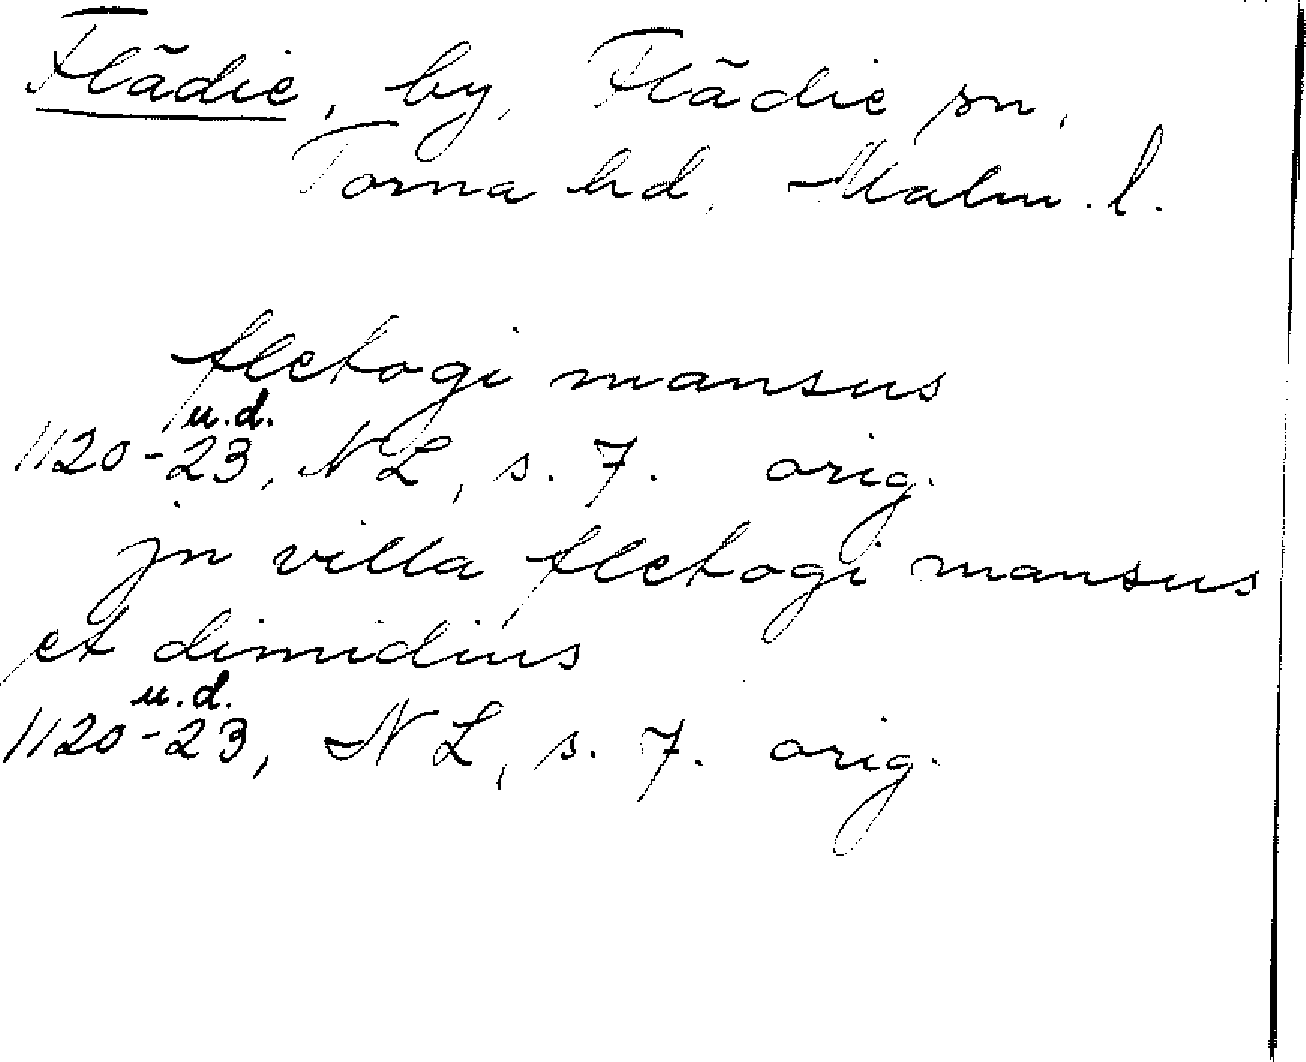 Flädie, by, Flädie sn,
Torna hd, Malm. l.
fletogi mansus
u.d.
1120-23, NL, s. 7. orig.
jn villa fletogi mansus
et dimidius
u.d.
1120-23, NL, s. 7. orig.